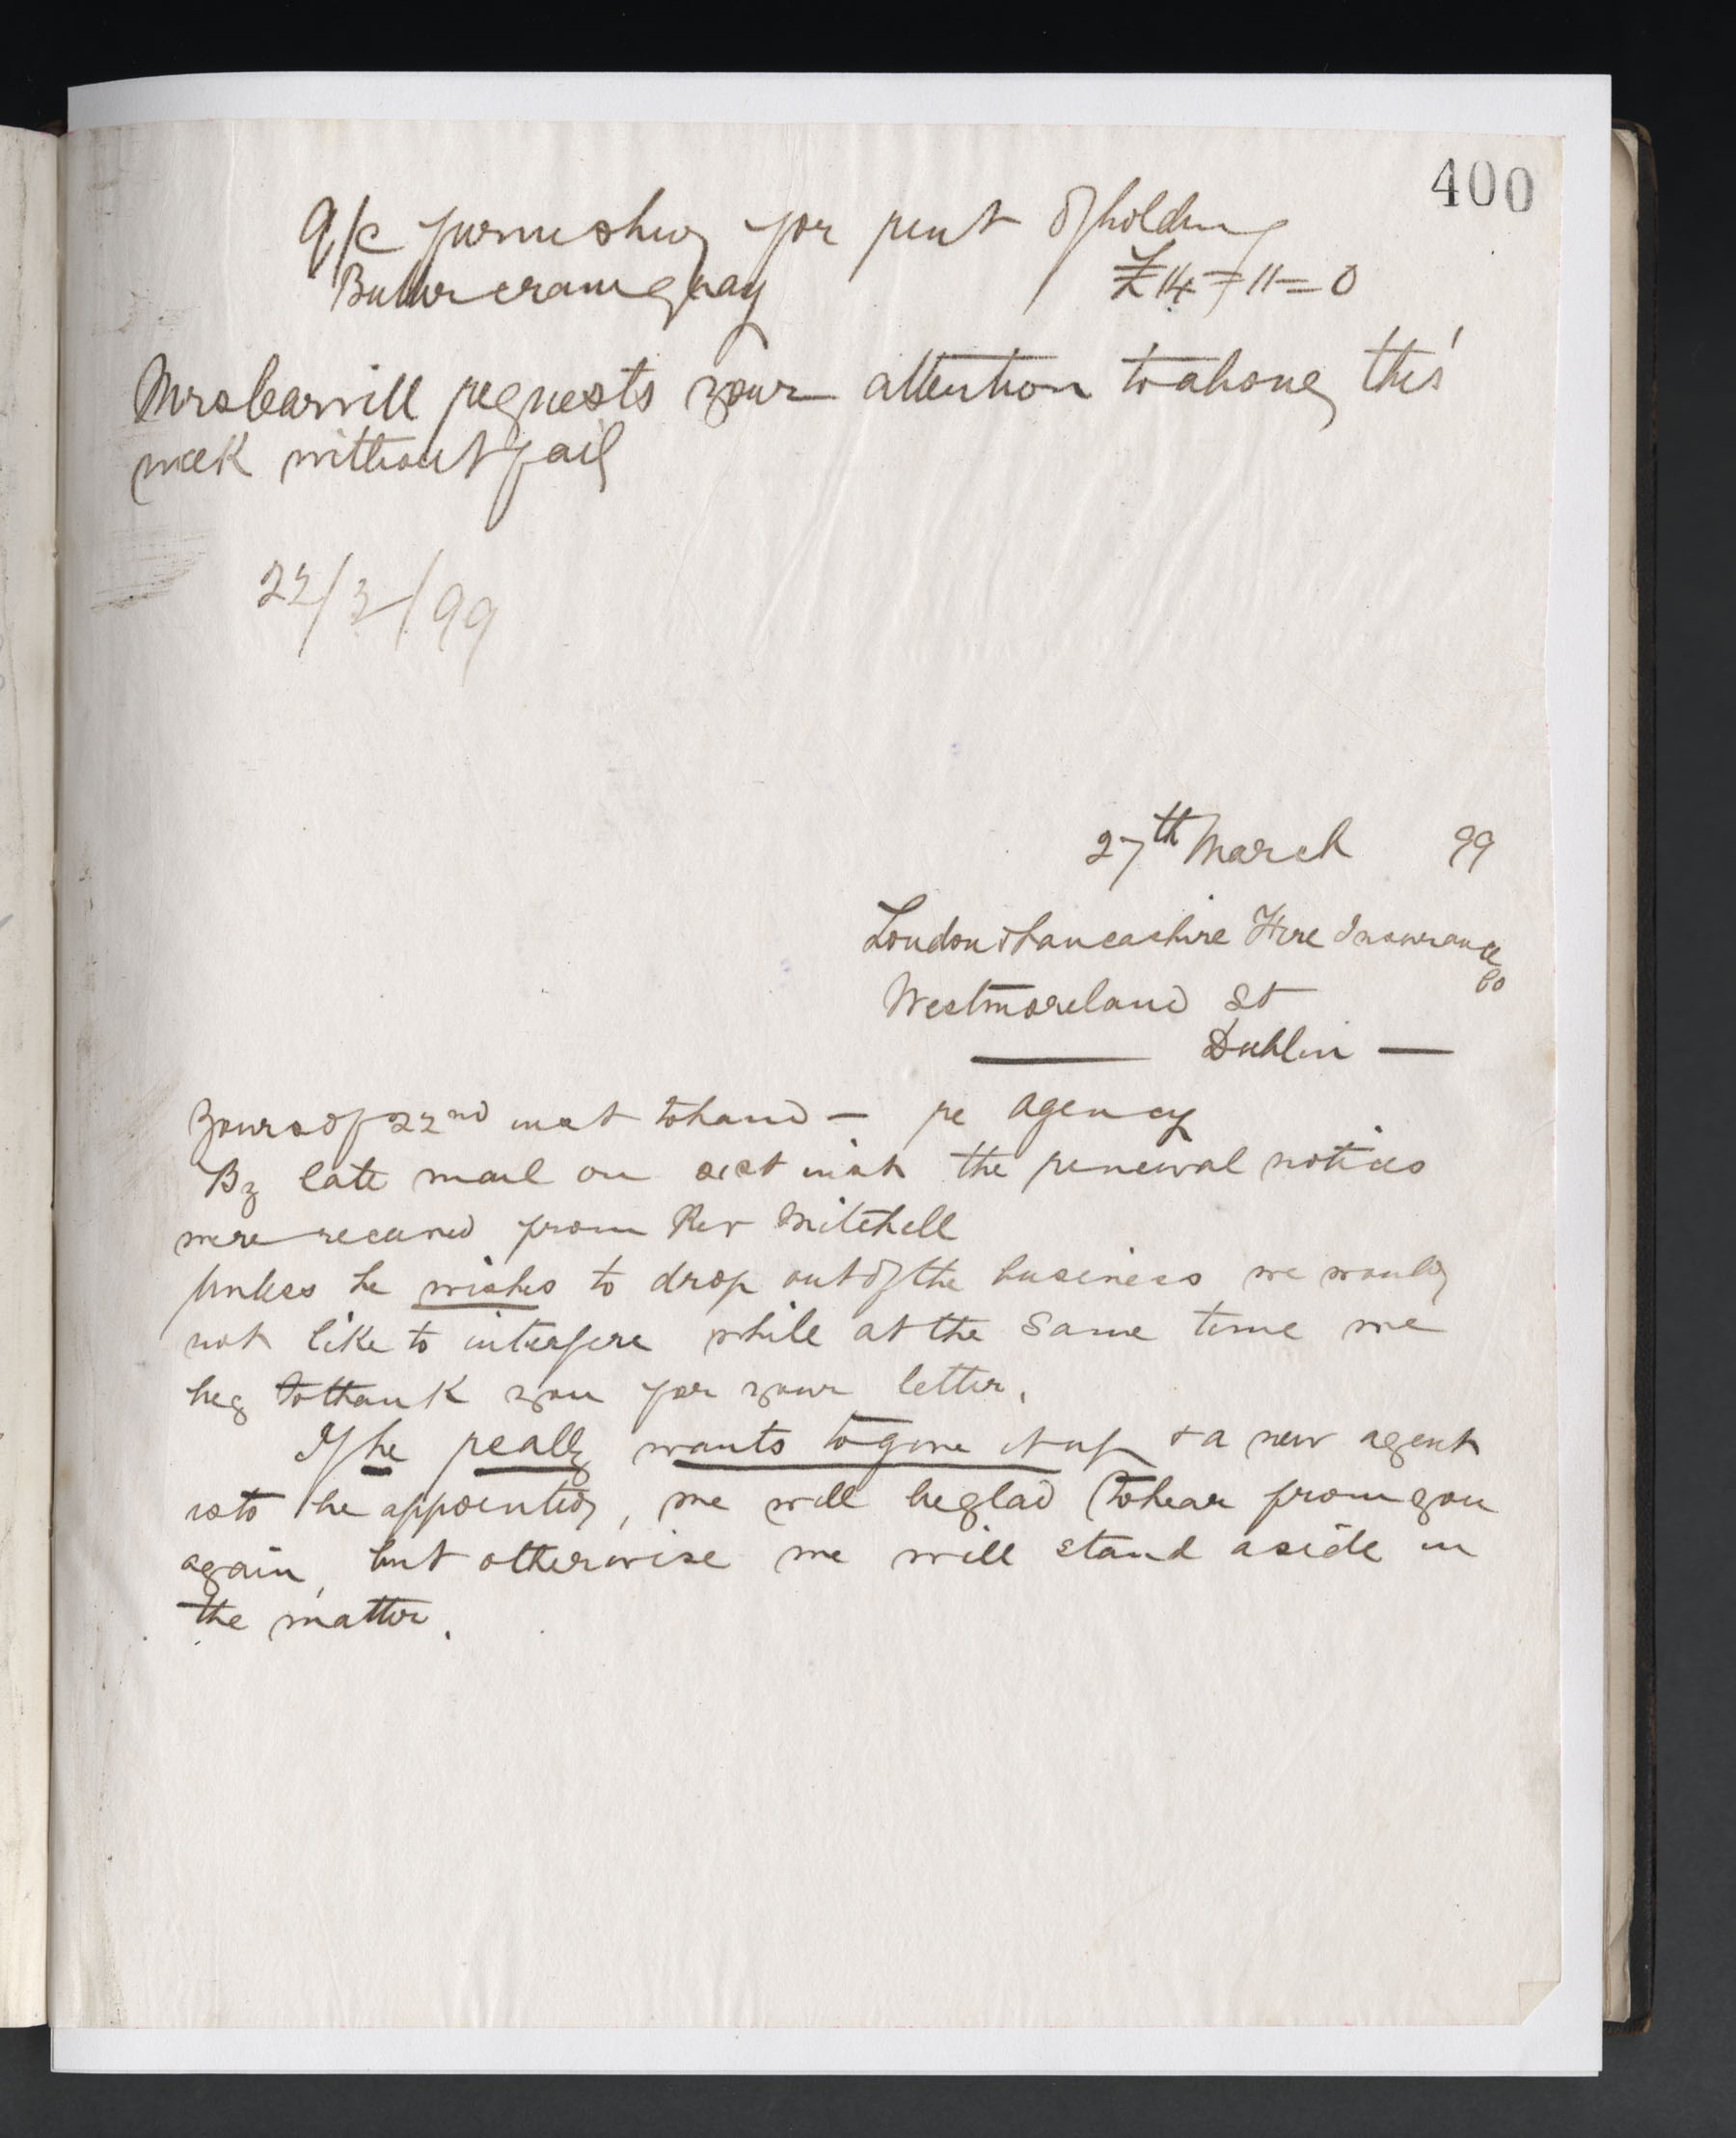 400
a/c furnished for rent of holding
£14 = 11 = 0
Mrs Carvill requests your attention to above this
week without fail
22/3/99
27th March 99
London & Lancashire Fire Insurance
Co
Westmoreland St
Dublin —
Yours of 22nd inst to hand — re agency
By late mail on 21st inst the renewal notices
were received from Rev Mitchell
Unless he wishes to drop out of the business we would
not like to interfere while at the same time we
beg to thank you for your letter.
If he really wants to give it up & a new agent
is to be appointed, we will be glad to hear from you
again, but otherwise we will stand aside in
the matter.